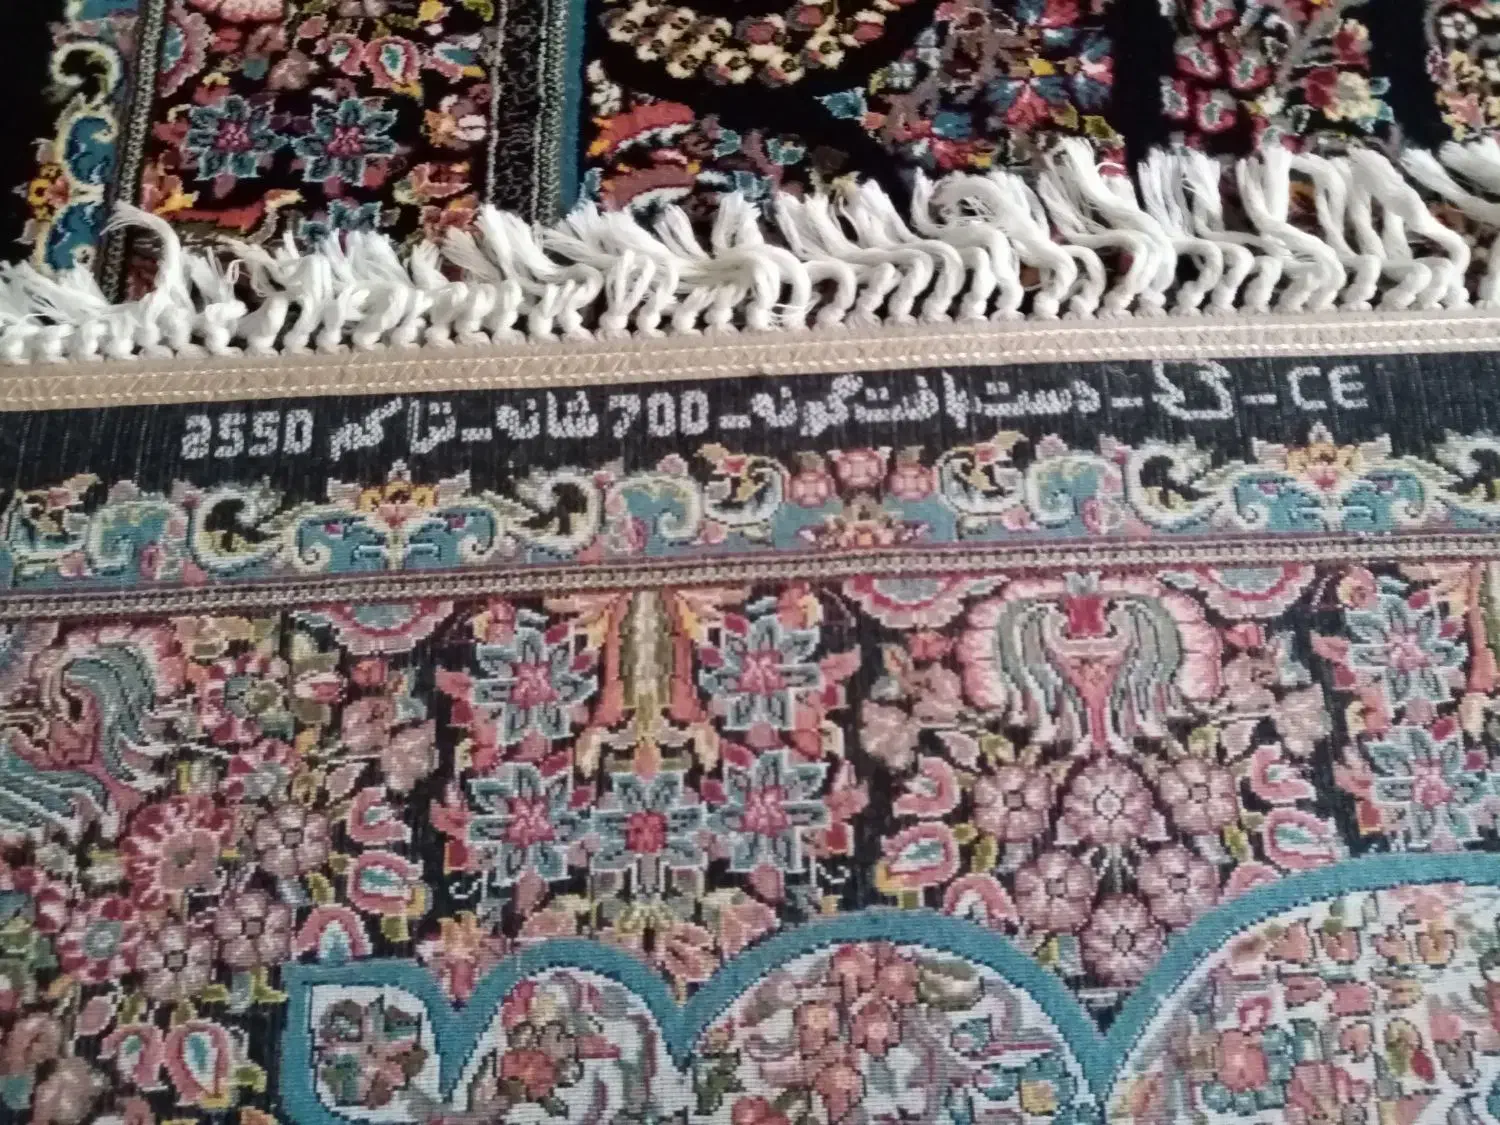 CE - دست‌بافت‌گونه - 700 شانه - تراکم 2550